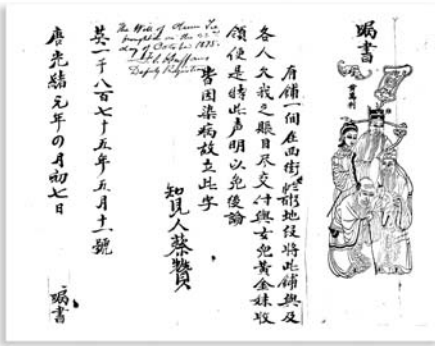 嘱書
有鋪一间在西街地段將此鋪與及
各人欠我之賬目尽交付與女兒黄金妹收
領便是特此声明以免後論
皆因染病故立此字
知見人蔡贊
The Will of
brought in on the 22nd
day of October 1875.
Deputy Registrar
英一千八百七十五年五月十一號
唐光緒元年四月初七日
嘱書